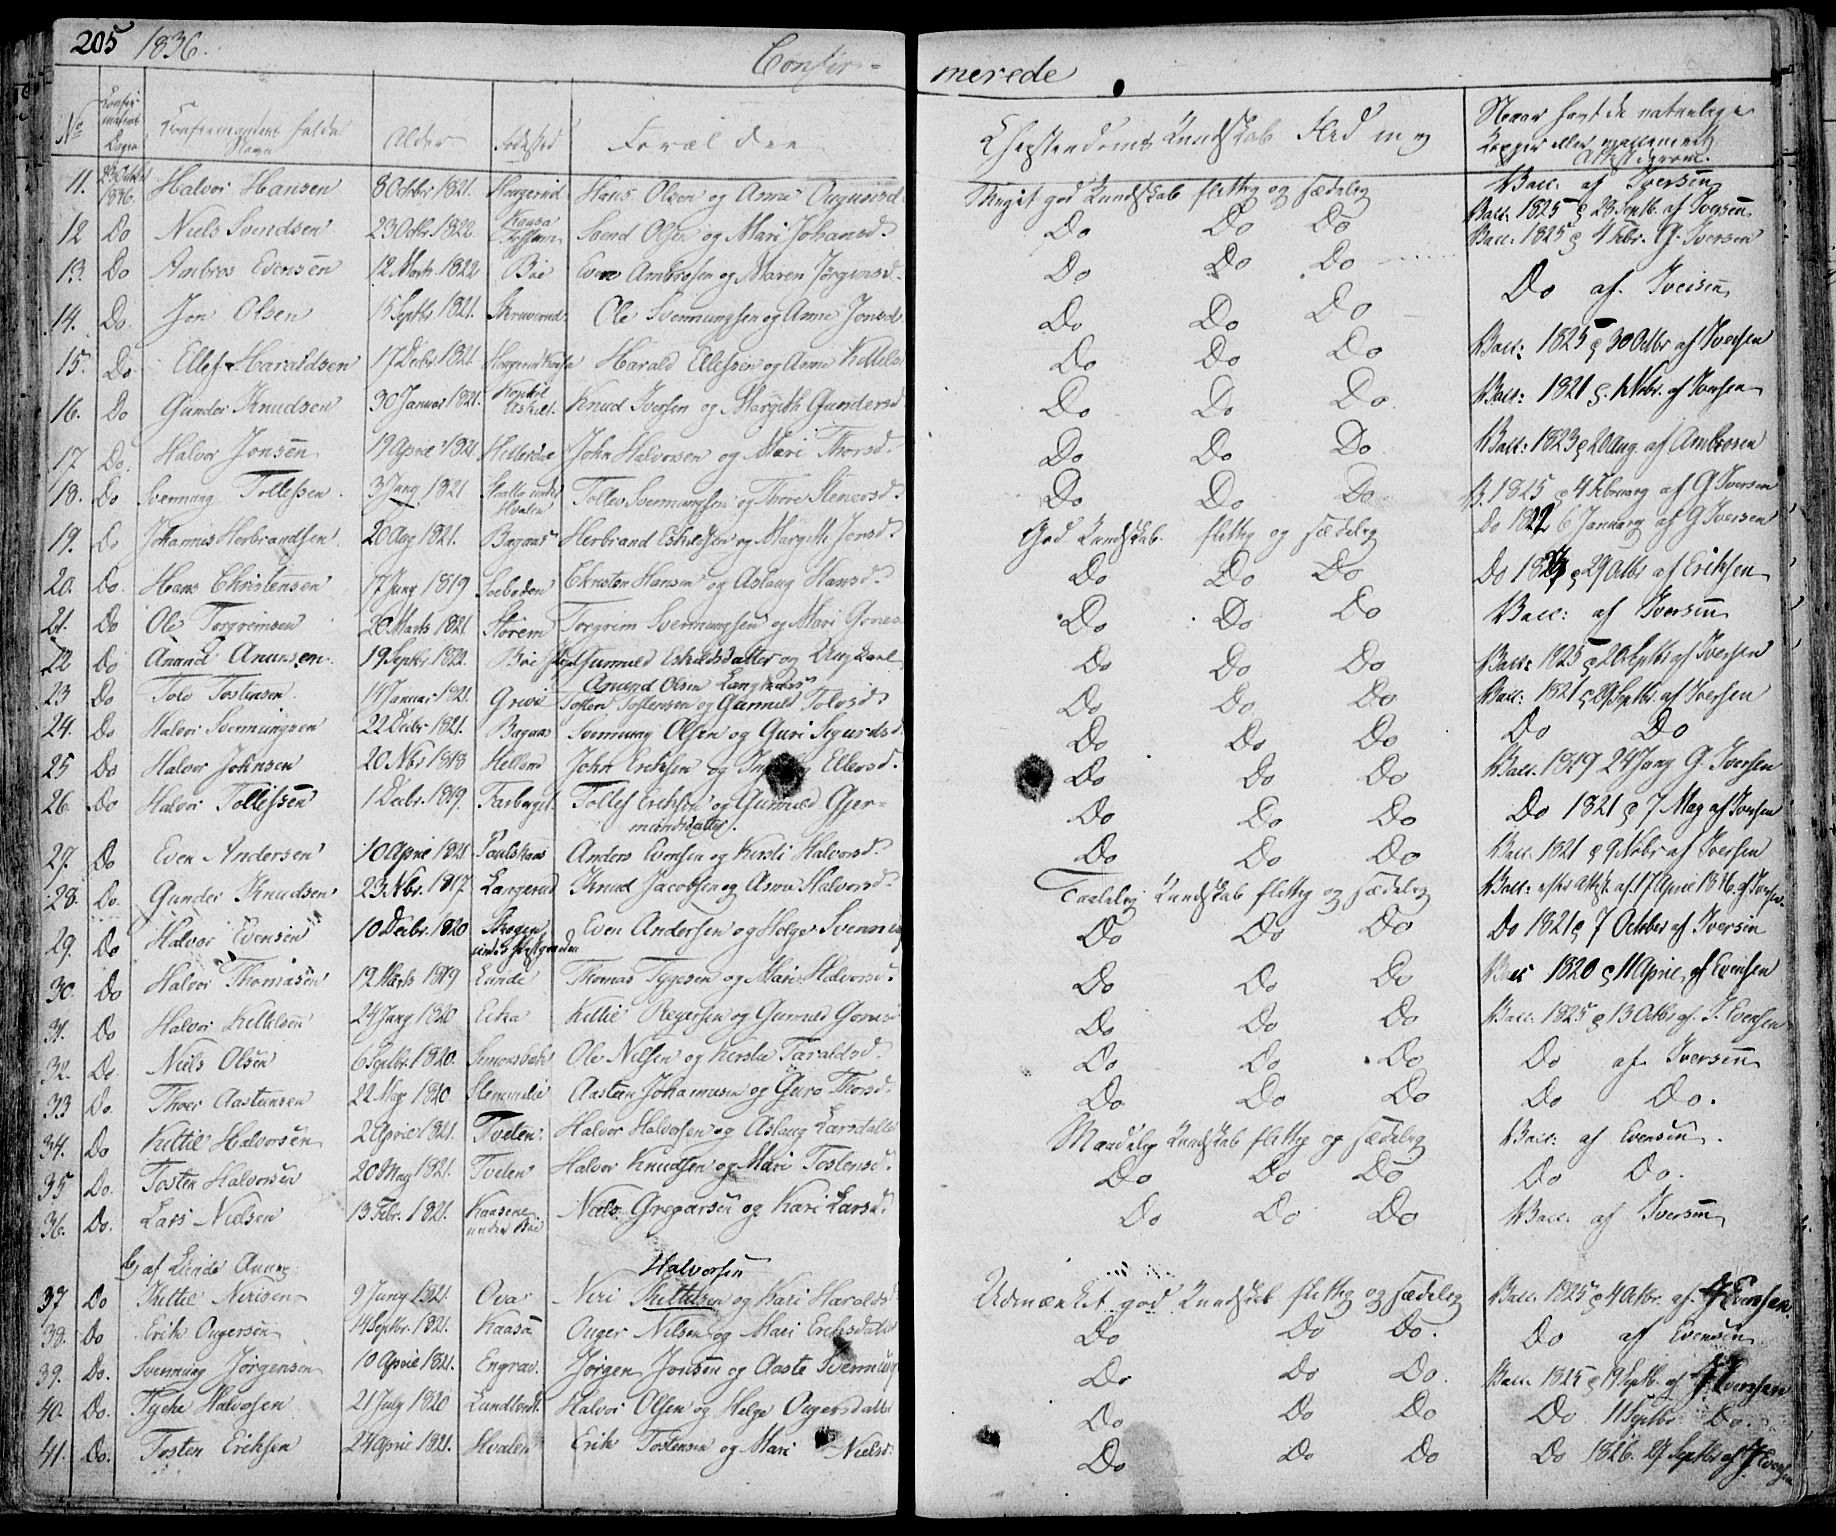 205 1836.
Confir-
merede
No Confirmations Dagen Confirmandens fulde Navn Alder Fødested Forældre Christendoms Kundskab Flid m v Naar havt de naturlige Kopper eller vaccineret Attest derom.
11. 23 Octobr 1836. Halvor Hansen 8 Octbr 1821. Haugerud Hans Olsen og Anne Meget god Kundskab flittig og sædelig Vacc: af Iversen
12 Do Niels Svendsen 23 Octr. 1822. Kaasa Svend Olsen og Mari Johansd. Do Do Do Vacc. 1825 28 Septb. af Iversen
13. Do Ambros Evensen 12 Marts 1822 Bøe Even Ambrosen og Maren Jørgensd. Do Do Do Vacc. 1825 4 Febr. G. Iversen
14. Do. Jon Olsen 15 Septbr 1821. Ole Svennungsen og Anne Jonsd. Do Do Do Do af Iversen
15. Do Ellef Haraldsen 17 Decbr 1821. Harald Ellefsen og Anne Kittels Do Do Do Vacc: 1825 30 Octbr af Iversen
16. Do Gunder Knudsen 30 Januar 1821. Knud Iversen og Margith Gundersd Do Do Do Vacc: 1821 Nbr. af Iversen
17 Do. Halvor Jonsen 19 April 1821. John Halvorsen og Mari Thorsd. Do Do Do Vacc: 1823 20 Aug. af Ambrosen
18. Do Svennung Tollefsen 3 Juny 1821 Hvalen Tollev Svennungsen og Thore Stenersd. Do Do Do V. 1825 4 February af G Iversen
19. Do Johannes Herbrandsen 20 Aug 1821. Bagaas Herbrand Eskildsen og Margith Jonsd. God Kundskab flittig og sædelig Do 1822 6 January af G Iversen
20. Do. Hans Christensen 17 Juny 1819 Søeboden Christen Hansen og Aslaug Hansd. Do Do Do Do 29 Octbr af Eriksen
21. Do Ole Torgrimsen 20 Marts 1821 Storem Torgrim Svennungsen og Mari Do Do Do Vacc: af Iversen
22 Do Anund Anunsen. 19 Septbr 1822. Bøe Gunnuld Eskildsdatter og Ungkarl Anund Olsen Do Do Do Vacc: 1825 20 Septbr af Iversen
23 Do Tolv Tostensen. 14 Januar 1821. Grivi Tosten Tostensen og Gunnuld Tolvsd. Do Do Do Vacc: 1821 29 Septbr. af Iversen
24. Do Halvor Svennungsen 22 Decbr 1821. Bagaas Svennung Olsen og Guri Sigurdsd. Do Do Do Do Do
25 Do Halvor Johnsen 20 Nbr 1818 John Eriksen og Ellefsd. Do Do Do Vacc. 1819 24 Juny G. Iversen
26. Do Halvor Tollefsen 1 Decbr. 1819. Farberget Tollef Eriksen og Gunnuld Gjermundsdatter. Do Do Do Do 1821 7 May af Iversen
27. Do Even Andersen 10 April 1821 Poulskaas Anders Evensen og Kirsti Halvorsd. Do Do Do Vacc. 1821 9 Nobr af Iversen
28. Do. Gunder Knudsen 23 Nbr. 1817. Langerud Knud Jacobsen og Anne Halvorsd. Taalelig Kundskab flittig og sædelig Vacc: efter Attest. af 17 April 1836. af Iversen.
29. Do Halvor Evensen 10 Decbr. 1820 Skogen under Præstgaarden Even Andersen og Helge Svennug Do Do Do Do 1821 7 October af Iversen
30. Do Halvor Thomasen 12 Marts 1819 Lunde Thomas Tygesen og Mari Halvorsd. Do Do Do Vacc 1820 11 April af Evensen
31. Do Halvor Kittelsen 24 Juny 1820 Eika Kittil Reyersen og Gunnuld Do Do Do Vacc. 1825 13 Octbr af. I. Evensen
32. Do. Niels Olsen 6 Septbr. 1820. Simonsbakk Ole Nilsen og Kirstie Taraldsd. Do Do Do Do af Iversen
33 Do. Thoer Aastensen 22 May 1820. Aasten Johannesen og Guro Thorsd. Do Do Do Do Do.
34. Do Kittil Halvorsen 2 April 1821. Tveten. Halvor Halvorsen og Aslaug Larsdatter Maadelig Kundskab flittig og sædelig Vacc: af Evensen.
35 Do. Tosten Halvorsen 20 May 1821. Tveten Halvor Knudsen og Mari Tostensd. Do Do Do Do Do.
36. Do. Lars Nielsen 13 Febr. 1821. Kaasene under Bøe Niels Gregarsen og Kari Larsd. Do Do Do Vacc. af Iversen
b, af Lunde Annex
37 Do Kittil Nirisen 9 Juny 1821. Ova Niri Kittelsen Halvorsen og Kari Haralds Udmærket god Kundskab flittig og sædelig Vacc. 1825 4 Octbr. af. I Evensen.
38. Do Erik Ougersen 14 Septbr. 1821. Kaasa Ouger Nilsen og Mari Eriksdatter Do Do Do. Do af Evensen
39. Do. Svennung Jørgensen 10 April 1821. Engrav. Jørgen Jonsen og Aaste Svennug Do Do Do. Vacc. 1825 19 Septb. af I Evensen
40. Do. Tyche Halvorsen. 21 July 1820 Halvor Olsen og Helge Ougersdatter Do Do Do Do 11 Septbr Do.
41. Do. Tosten Eriksen 24 April 1821. Hvalen Erik Tostensen og Mari Nielsd. Do Do Do Do 1826. 27 Septbr af I Evensen